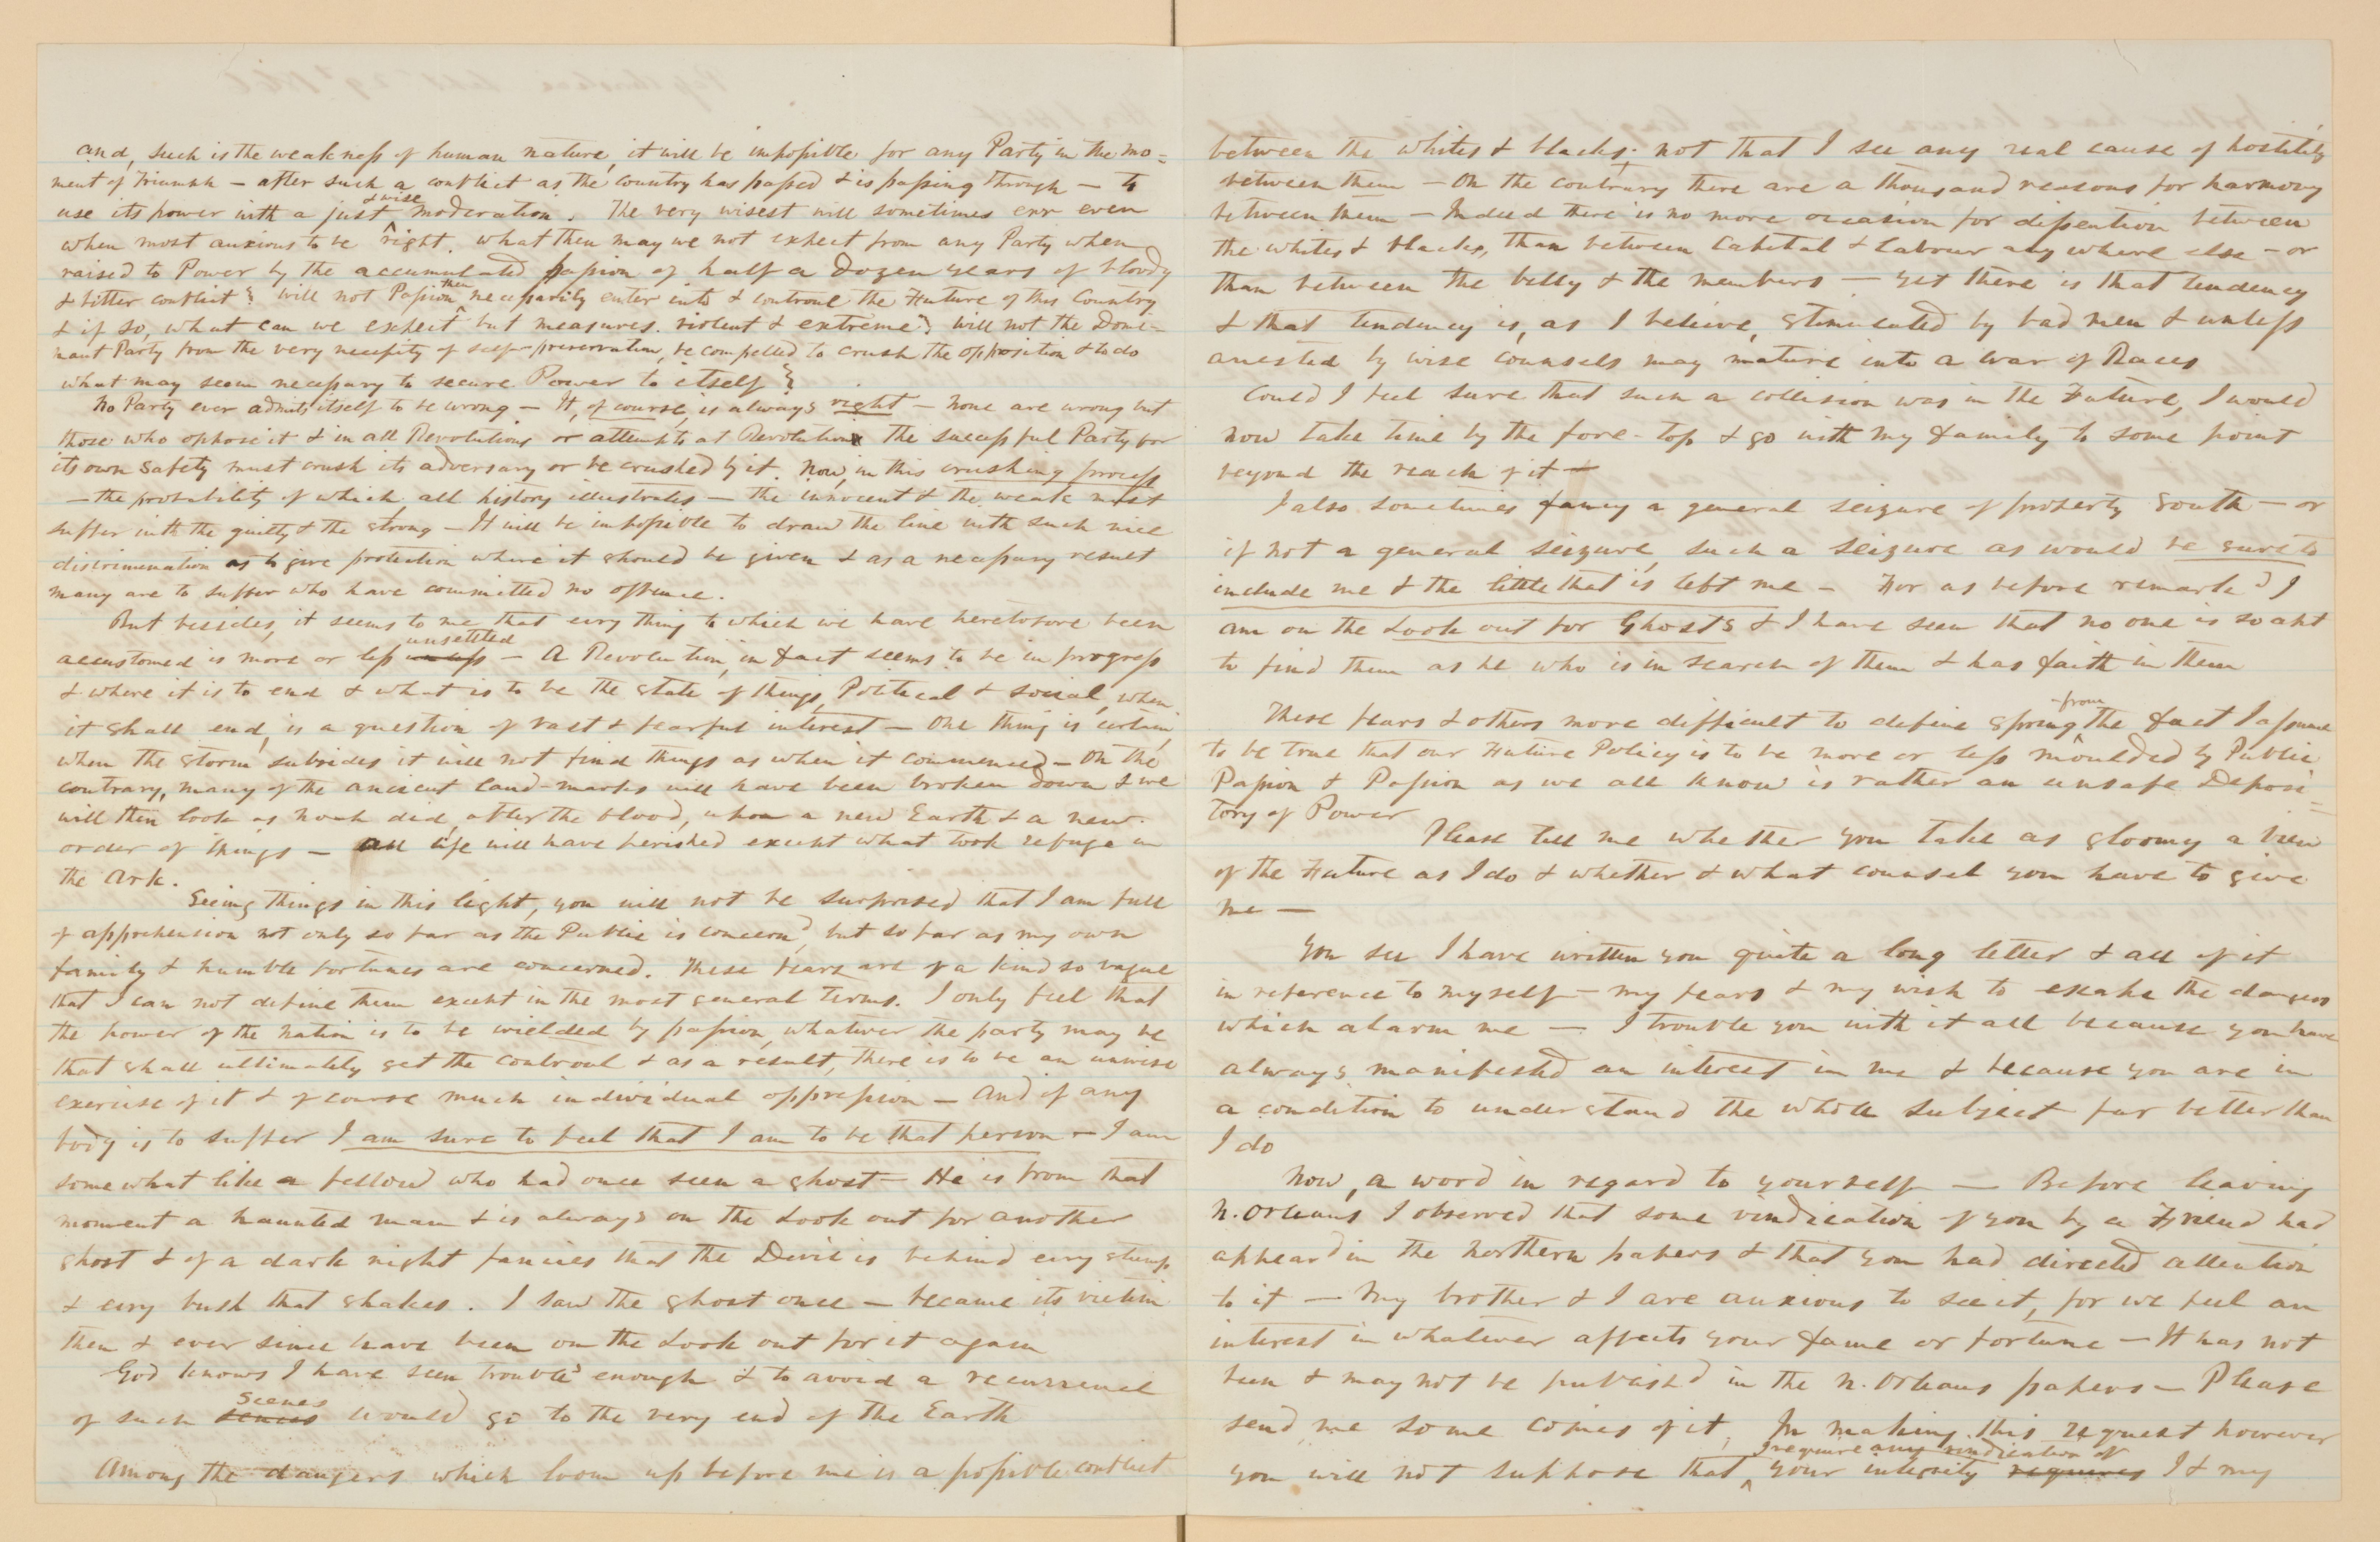 and, such is the weakness of human nature, it will be impossible for any Party in the mo=
ment of Triumph — after such a conflict as the Country has passed & is passing through — to
use its power with a just & wise moderation. The very wisest will sometimes err even
when most anxious to be right. What then may we not expect from any Party when
raised to Power by the accumulated passion of half a dozen years of bloody
& bitter conflict? Will not Passion then necessarily enter into & controul the Future of this Country
& if so, what can we expect but measures violent & extreme? Will not the Domi-
nant Party from the very necessity of self-preservation, be compelled to crush the opposition & to do
what may seem necessary to secure Power to itself?
No Party ever admits itself to be wrong — It, of course, is always right — None are wrong but
those who oppose it & in all Revolutions or attempts at Revolution the successful Party for
its own safety must crush its adversary or be crushed by it. Now, in this crushing process
— the probability of which all history illustrates — the innocent & the weak must
suffer with the guilty & the strong — It will be impossible to draw the line with such nice
discrimination as to give protection where it should be given & as a necessary result
many are to suffer who have committed no offence.
But besides, it seems to me that evry thing to which we have heretofore been
accustomed is more or less unsettled — A Revolution, in fact seems to be in progress
& where it is to end & what is to be the state of things, Political & social, when
it shall end, is a question of vast & fearful interest — One thing is certain,
when the storm subsides it will not find things as when it commenced — On the
contrary, many of the ancient land-marks will have been broken down & we
will then look as Noah did, after the flood, upon a new Earth & a new
order of things — all life will have perished except what took refuge in
the Ark.
Seeing things in this light, you will not be surprised that I am full
of apprehension not only so far as the Public is concernd, but so far as my own
family & humble fortunes are concerned. These fears are of a kind so vague
that I can not define them except in the most general terms. I only feel that
the power of the Nation is to be wielded by passion, whatever the party may be
that shall ultimately get the controul & as a result, there is to be an unwise
exercise of it & of course much individual oppression — And if any
body is to suffer I am sure to feel that I am to be that person — I am
somewhat like a fellow who had once seen a ghost — He is from that
moment a haunted man & is always on the Look out for another
ghost & of a dark night fancies that the Devil is behind evry stump
& evry bush that shakes. I saw the ghost once — became its victim
then & ever since have been on the Look out for it again
God knows I have seen trouble enough & to avoid a recurrence
of such scenes would go to the very end of the Earth
Among the dangers which loom up before me is a possible conflict
between the whites & blacks; not that I see any real cause of hostility
between them — On the contrary there are a thousand reasons for harmony
between them — Indeed there is no more occasion for dissention between
the whites & blacks, than between Capital & Labour any where else — or
than between the belly & the members — yet there is that tendency
& that tendency is, as I believe, stimulated by bad men & unless
arrested by wise counsels may mature into a War of Races
Could I feel sure that such a collision was in the Future, I would
now take time by the fore-top & go with my family to some point
beyond the reach of it —
I also sometimes fancy a general seizure of property South — or
if not a general seizure, such a seizure as would be sure to
include me & the little that is left me — For as before remarkd I
am on the Look out for Ghosts & I have seen that no one is so apt
to find them as he who is in search of them & has faith in them
These fears & others more difficult to define spring from the fact I assume
to be true that our Future Policy is to be more or less moulded by Public
Passion & Passion as we all know is rather an unsafe Deposi=
tory of Power
Please tell me whether you take as gloomy a view
of the Future as I do & whether & what counsel you have to give
me —
You see I have written you quite a long letter & all of it
in reference to myself — my fears & my wish to escape the dangers
which alarm me — I trouble you with it all because you have
always manifested an interest in me & because you are in
a condition to understand the whole subject far better than
I do
Now, a word in regard to yourself — Before leaving
N. Orleans I observed that some vindication of you by a Friend had
appeard in the Northern papers & that you had directed attention
to it — My brother & I are anxious to see it, for we feel an
interest in whatever affects your fame or fortune — It has not
been & may not be publishd in the N. Orleans papers — Please
send me some copies of it. In making this request however
you will not suppose that I require any vindication of your integrity requires I & my